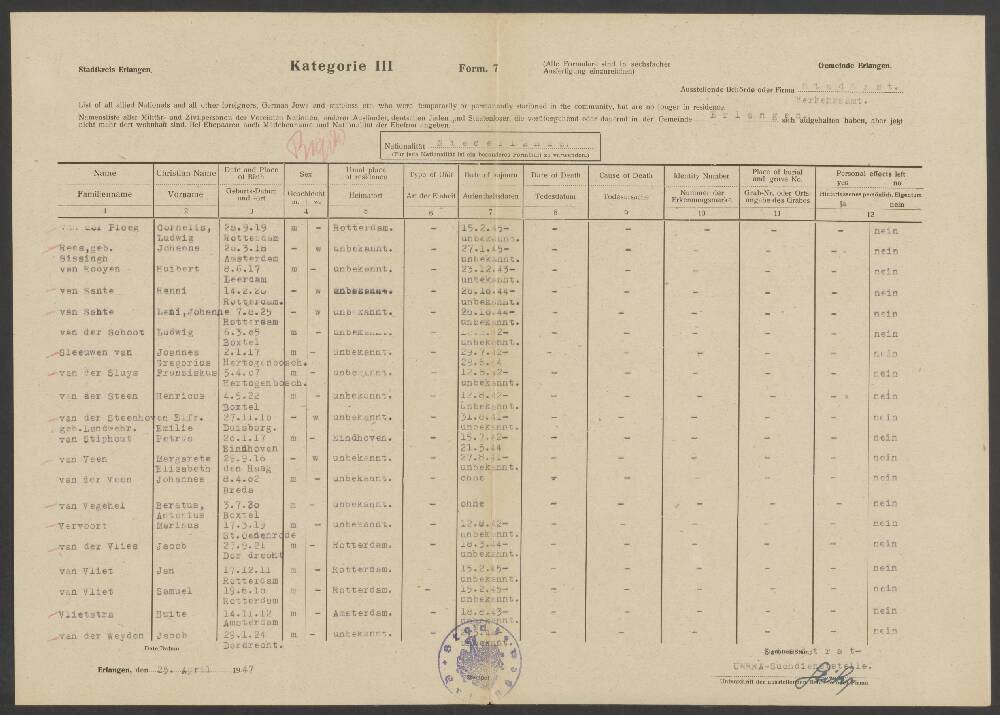 Stadtkreis Erlangen.
Kategorie III
Form. 7
(Alle Formulare sind in sechsfacher
Ausfertigung einzureichen)
Gemeinde Erlangen.
Ausstellende Behörde oder Firma Stadtrat.
Verkehrsamt.
List of all allied Nationals and all other foreigners, German Jews and stateless etc. who were temporarily or permanently stationed in the community, but are no longer in residence.
Namensliste aller Militär- und Zivilpersonen der Vereinten Nationen, anderer Ausländer, deutschen Juden und Staatenloser, die vorübergehend oder dauernd in der Gemeinde Erlangen sich aufgehalten haben, aber jetzt
nicht mehr dort wohnhaft sind. Bei Ehepaaren auch Mädchenname und Nationalität der Ehefrau angeben.
Nationalität Niederlande.
(Für jede Nationalität ist ein besonderes Formular zu verwenden.)
Name Christian Name Date and Place of Birth Sex Usual place of residence Type of Unit Date of sojourn Date of Death Cause of Death Identity Number Place of burial and grave No. Personal effects left yes no
Familienname Vorname Geburts-Datum und -ort Geschlecht m. w. Heimatort Art der Einheit Aufenthaltsdaten Todesdatum Todesursache Nummer der Erkennungsmarke Grab-Nr. oder Orts-angabe des Grabes Hinterlassenes persönlich. Eigentum ja nein
1 2 3 4 5 6 7 8 9 10 11 12
van der Ploeg Cornelis, 28.9.19 m - Rotterdam. - 15.2.45- - - - - - nein
Ludwig Rotterdam unbekannt.
Rees,geb. Johanna 20.3.18 - w unbekannt. - 27.1.45- - - - - - nein
Sissingh Amsterdam unbekannt.
van Rooyen Huibert 8.6.17 m - unbekannt. - 23.12.43- - - - - - nein
Leerdam unbekannt.
van Sante Henni 14.2.26 - w unbekannt. - 26.10.44- - - - - - nein
Rotterdam. unbekannt.
van Sante Leni,Johanne 7.8.25 - w unbekannt. - 26.10.44- - - - - - nein
Rotterdam unbekannt.
van der Schoot Ludwig 6.3.05 m - - - - - - - nein
Boxtel unbekannt.
Sleeuwen van Joannes 2.1.17 m - unbekannt. - 29.7.42- - - - - - nein
Gregorius Hertogenbosch.
van der Sluys Franziskus 3.4.07 m - unbekannt. - 12.8.42- - - - - - nein
Hertogenbosch. unbekannt.
van der Steen Henricus 4.5.22 m - unbekannt. - 12.8.42- - - - - - nein
Boxtel unbekannt.
van der Steenhoven Elfr. 27.11.16 - w unbekannt. - 31.8.41- - - - - - nein
geb.Landwehr. Emilie Duisburg. unbekannt.
van Stiphout Petrus 20.1.17 m - Eindhoven. - 15.7.42- - - - - - nein
Eindhoven 21.5.44
van Veen Margarete 29.9.16 - w unbekannt. - 27.8.41- - - - - - nein
Elisabeth den Haag unbekannt.
van der Veen Johannes 8.4.02 m - unbekannt. - ohne - - - - - nein
Breda
van Veghel Beratus, 3.7.20 m - unbekannt. - ohne - - - - - nein
Antonius Boxtel
Vervoort Marinus 17.3.19 m - unbekannt. - 12.8.42- - - - - - nein
St.Oedenrode unbekannt.
van der Vlies Jacob 27.9.21 m - Rotterdam. - 18.3.44- - - - - - nein
Dordrecht unbekannt.
van Vliet Jan 17.12.11 m - Rotterdam. - 15.2.45- - - - - - nein
Rotterdam unbekannt.
van Vliet Samuel 19.6.18 m - Rotterdam. - 15.2.45- - - - - - nein
Rotterdam unbekannt.
Vlietstra Huite 14.11.12 m - Amsterdam. - 18.8.43- - - - - - nein
Amsterdam unbekannt.
van der Weyden Jacob 29.1.24 m - unbekannt. - - - - - - nein
Dordrecht. unbekannt.
Date/Datum
Erlangen, den 29. April 1947
Stadtrat-
UNRRA-Suchdienststelle.